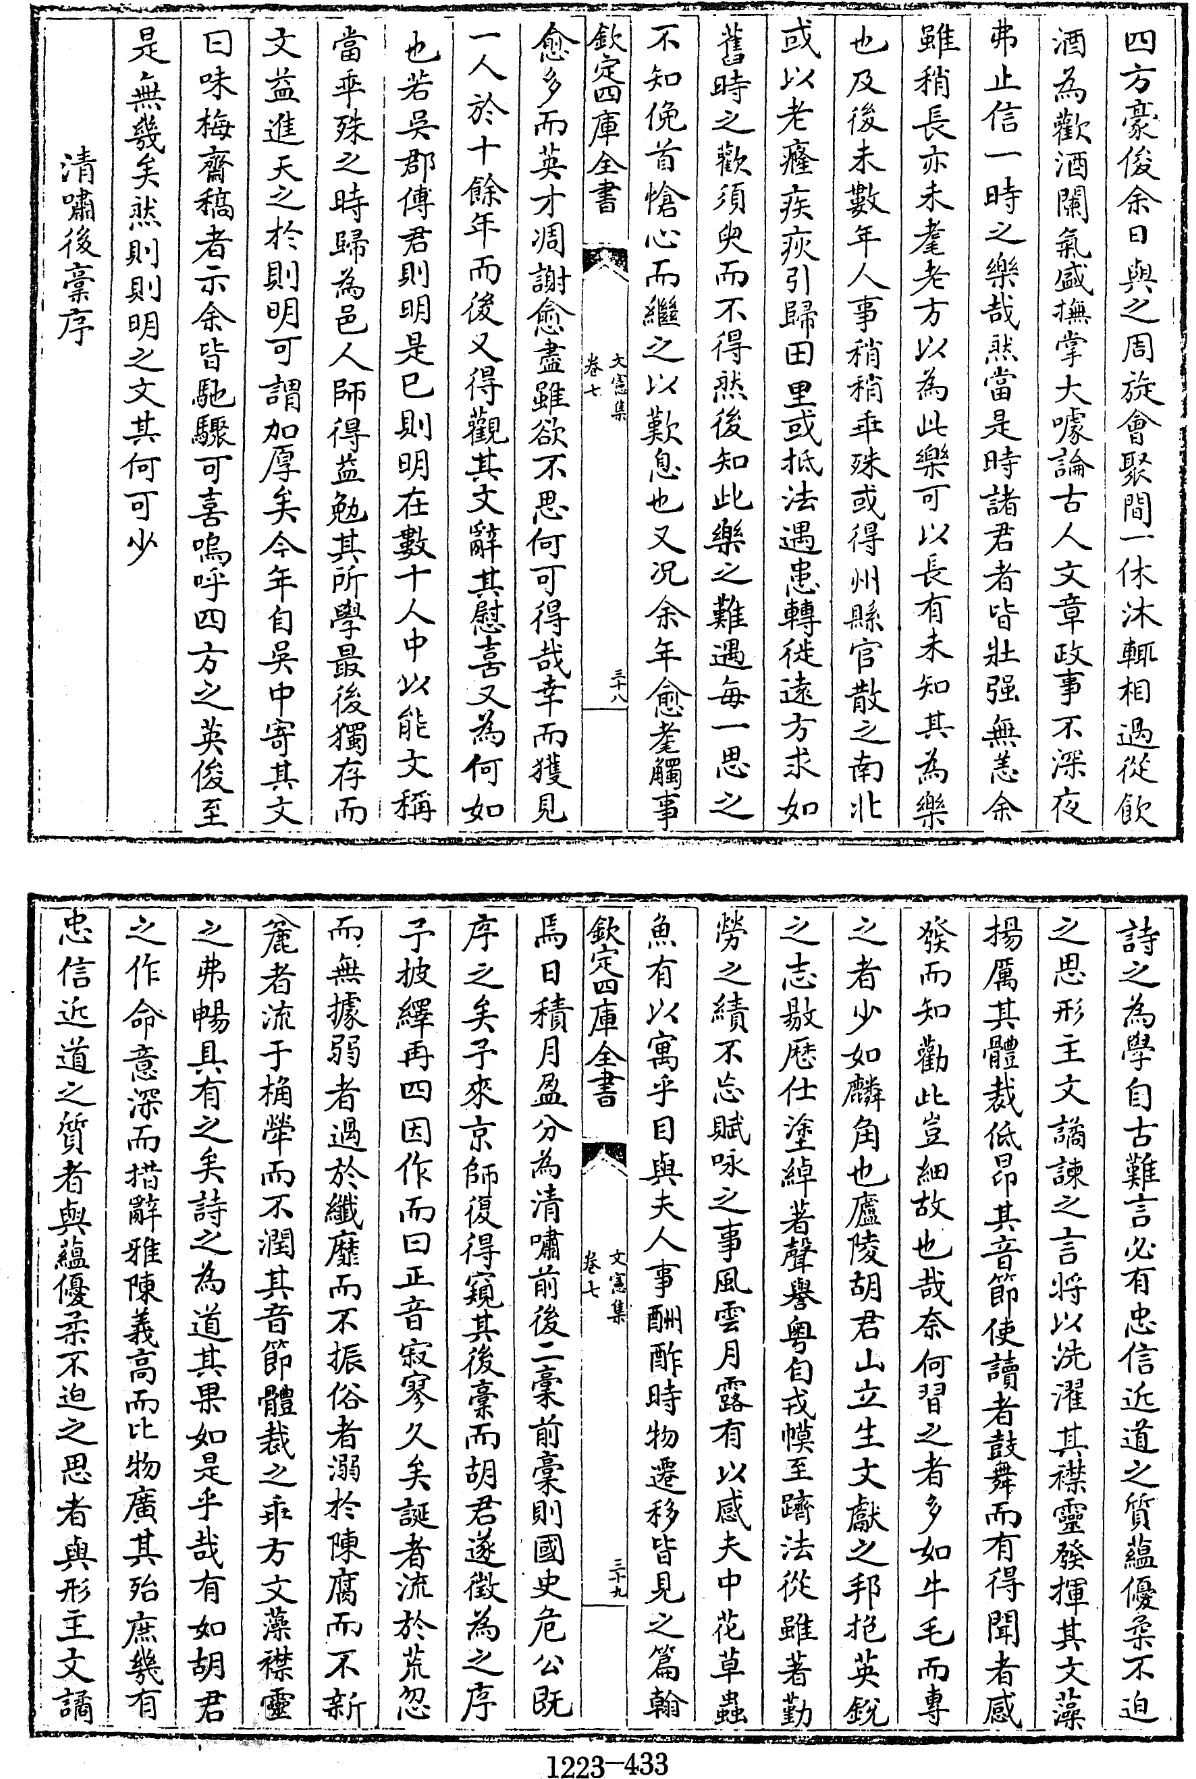 四方豪俊余日與之周旋會聚間一休沐輒相過從飲
酒為歡酒闌氣盛撫掌大噱論古人文章政事不深夜
弗止信一時之樂哉然當是時諸君者皆壯强無恙余
雖稍長亦未耄老方以為此樂可以長有未知其為樂
也及後未數年人事稍稍乖殊或得州縣官散之南北
或以老癃疾疢引歸田里或抵法遇患轉徙遠方求如
舊時之歡須臾而不得然後知此樂之難遇每一思之
不知俛首愴心而繼之以歎息也又况余年愈耄觸事
欽定四庫全書
文憲集
卷七
三十八
愈多而英才凋謝愈盡雖欲不思何可得哉幸而獲見
一人於十餘年而後又得觀其文辭其慰喜又為何如
也若吳郡傅君則明是已則明在數十人中以能文稱
當乖殊之時歸為邑人師得益勉其所學最後獨存而
文益進天之於則明可謂加厚矣今年自吳中寄其文
曰味梅齋稿者示余皆馳驟可喜嗚呼四方之英俊至
是無幾矣然則則明之文其何可少
清嘯後稾序
詩之為學自古難言必有忠信近道之質蘊優柔不迫
之思形主文譎諫之言將以洗濯其襟靈發揮其文藻
揚厲其體裁低昂其音節使讀者鼓舞而有得聞者感
發而知勸此豈細故也哉奈何習之者多如牛毛而專
之者少如麟角也廬陵胡君山立生文獻之邦抱英銳
之志敭歷仕塗綽著聲譽粤自戎幙至躋法從雖著勤
勞之績不忘賦咏之事風雲月露有以感夫中花草蟲
魚有以寓乎目與夫人事酬酢時物遷移皆見之篇翰
欽定四庫全書
文憲集
卷七
三十九
焉日積月盈分為清嘯前後二稾前稾則國史危公既
序之矣予來京師復得窺其後稾而胡君遂徵為之序
予披繹再四因作而曰正音寂寥久矣誕者流於荒忽
而無據弱者過於纖靡而不振俗者溺於陳腐而不新
麄者流于桷犖而不潤其音節體裁之乖方文藻襟靈
之弗暢具有之矣詩之為道其果如是乎哉有如胡君
之作命意深而措辭雅陳義高而比物廣其殆庶幾有
忠信近道之質者與蘊優柔不迫之思者與形主文譎
1223-433